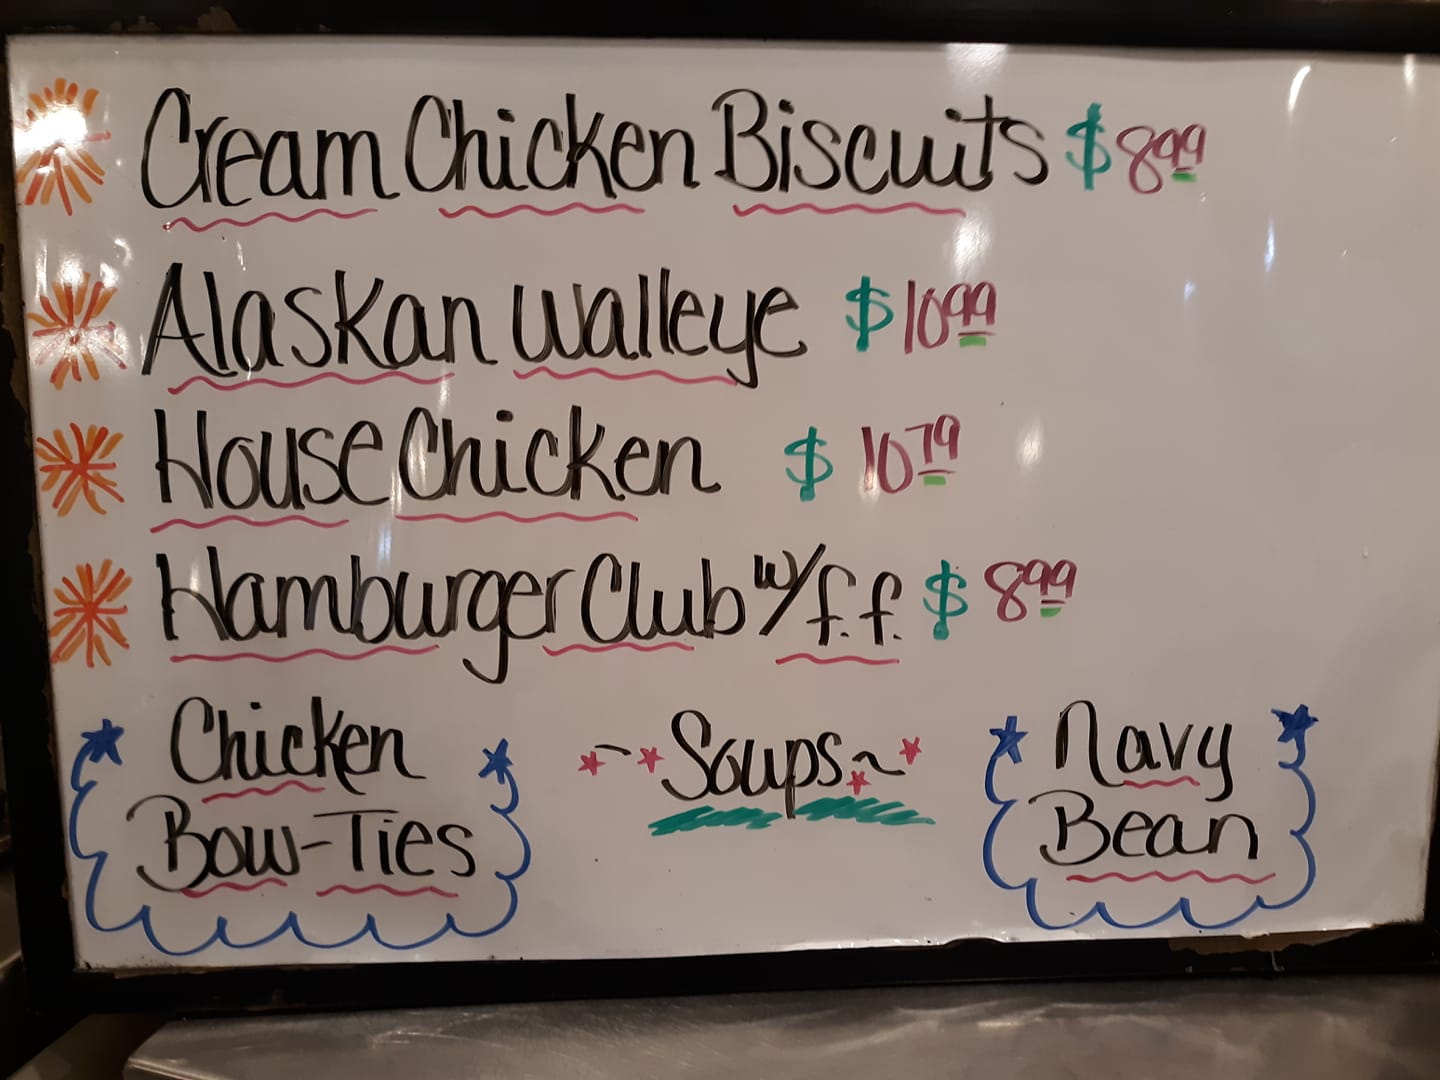 Cream Chicken Biscuits $8.99
Alaskan Walleye $10.99
House Chicken $10.79
Hamburger Club w/f.f. $8.99
Chicken
Bow-Ties
~Soups~
Navy
Bean